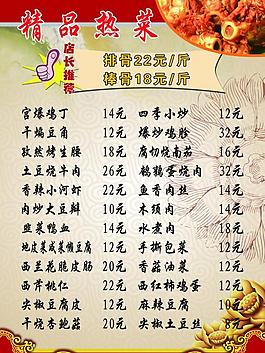 精品热菜
店长推荐
排骨22元/斤
棒骨18元/斤
宫爆鸡丁 14元 四季小炒 12元
干煸豆角 12元 爆炒鸡胗 32元
孜然烤生腰 18元 腐切烧南茄 16元
土豆烧牛肉 26元 鹌鹑蛋烧肉 32元
香辣小河虾 22元 鱼香肉丝 14元
肉炒大豆瓣 10元 木须肉 14元
韭菜鸭血 14元 水煮肉 18元
地皮菜咸菜懒豆腐 12元 手撕包菜 12元
西兰花脆皮肠 20元 香菇油菜 12元
西芹桃仁 22元 西红柿鸡蛋 12元
尖椒豆腐皮 12元 麻辣豆腐 10元
干烧杏鲍菇 20元 尖椒土豆丝 8元